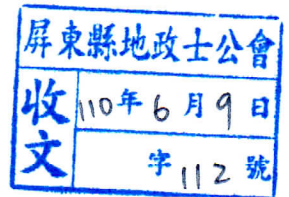 屏東縣地政士公會
收文
110年6月9日
字112號